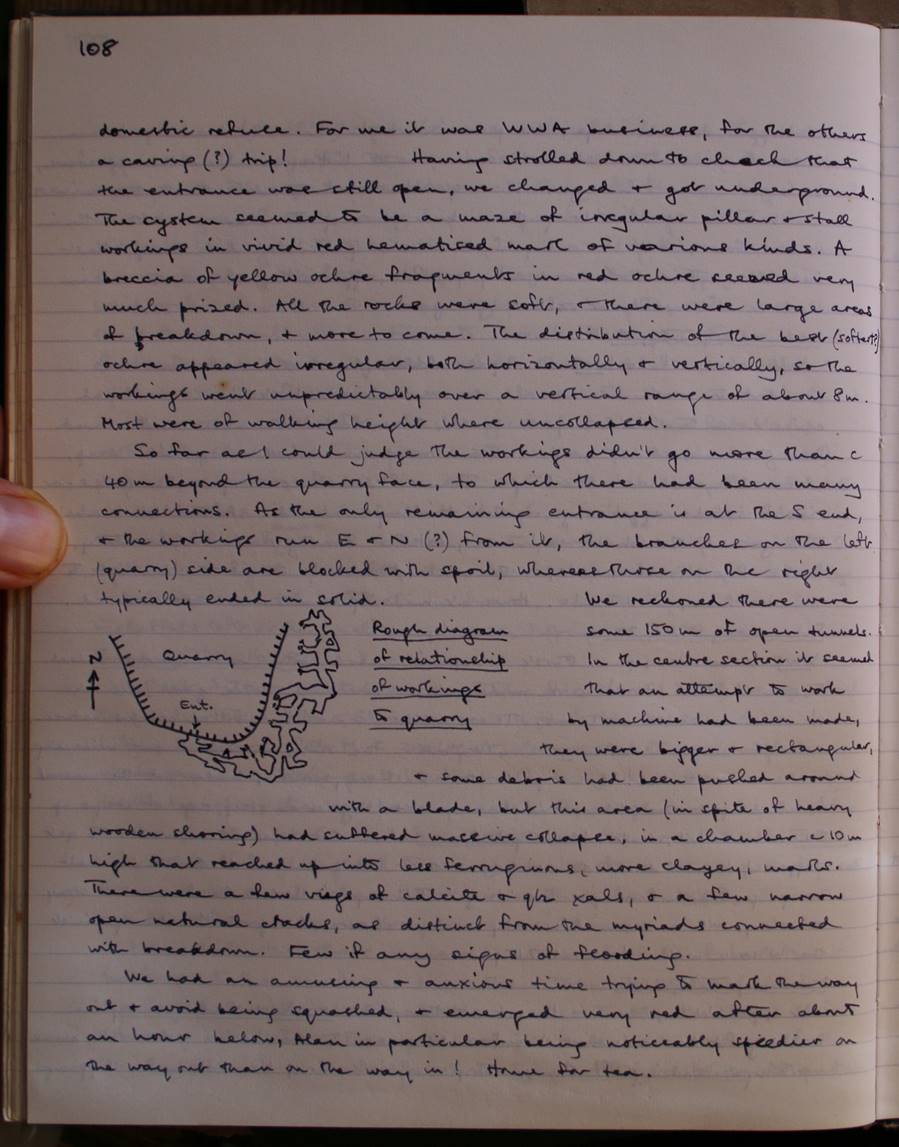 108
domestic refuse. For me it was WWA business, for the others
a caving (?) trip! Having strolled down to check that
the entrance was still open, we changed + got underground.
The system seemed to be a maze of irregular pillar + stall
workings in vivid red hematised marl of various kinds. A
breccia of yellow ochre fragments in red ochre seemed very
much prized. All the rocks were soft, + there were large areas
of breakdown, + more to come. The distribution of the best (softest?)
ochre appeared irregular, both horizontally + vertically, so the
workings went unpredictably over a vertical range of about 8m.
Most were of walking height where uncollapsed.
So far as I could judge the workings didn't go more than c
40m beyond the quarry face, to which there had been many
connections. As the only remaining entrance is at the S end,
+ the workings run E + N (?) from it, the branches on the left
(quarry) side are blocked with spoil, whereas those on the right
typically ended in solid. We reckoned there were
some 150m of open tunnels.
In the centre section it seemed
that an attempt to work
by machine had been made,
they were bigger + rectangular,
+ some debris had been pushed around
with a blade, but this area (in spite of heavy
wooden shoring) had suffered massive collapse, in a chamber c 10m
high that reached up into less ferruginous, more clayey, marls.
There were a few vugs of calcite + qtz xals, + a few narrow
open natural cracks, as distinct from the myriads connected
with breakdown. Few if any signs of flooding.
We had an amusing + anxious time trying to mark the way
out + avoid being squashed, + emerged very red after about
an hour below, Alan in particular being noticeably speedier on
the way out than on the way in! Home for tea.
Rough diagram
of relationship
of workings
to quarry
N
Quarry
Ent.